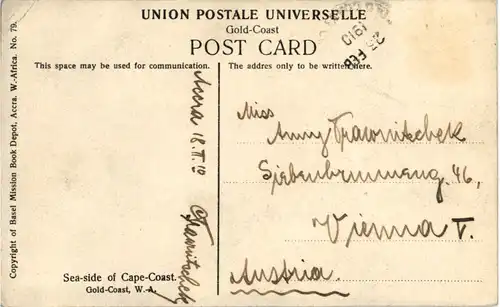 UNION POSTALE UNIVERSELLE
Gold-Coast
POST CARD
This space may be used for communication.
The addres only to be written here.
25 FEB
1910
Copyright of Basel Mission Book Depot, Accra, W.-Africa. No. 79.
Accra 18.II.10
Miss
Anny Trawnitschek
Siebenbrunneng. 46,
Vienna V.
Austria.
Sea-side of Cape-Coast.
Gold-Coast, W.-A.